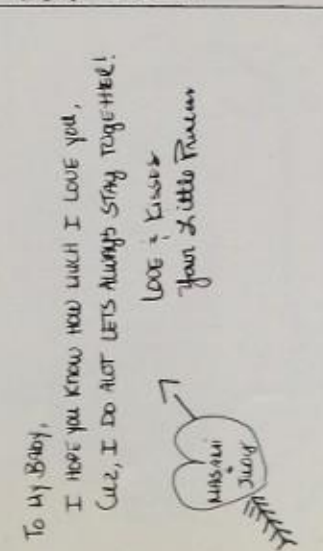 To My Baby,
I HOPE YOU KNOW HOW MUCH I LOVE YOU,
CUZ, I DO ALOT LETS ALWAYS STAY TOGETHER!
LOVE & KISSES
Your Little Princess
MASAMI
&
JUDY